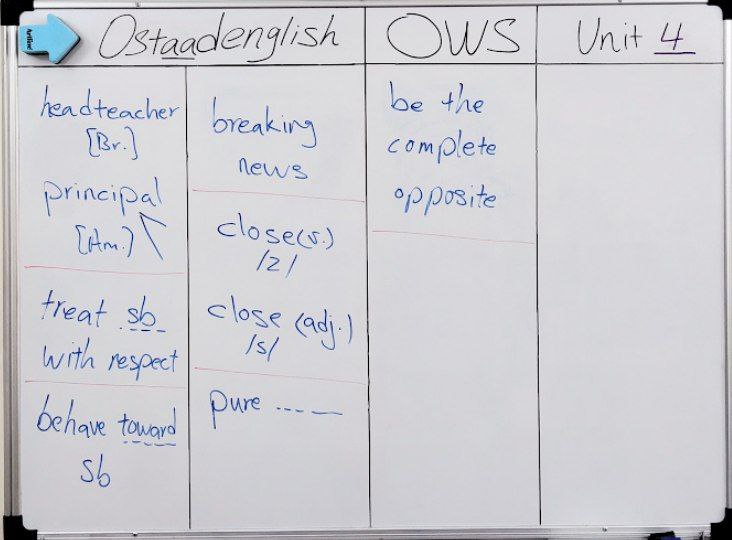 Ostaadenglish
OWS
Unit 4
headteacher
[Br.]
principal
[Am.]
treat sb
with respect
behave toward
sb
breaking
news
close(v.)
/z/
close (adj.)
/s/
pure ---- —
be the
complete
opposite